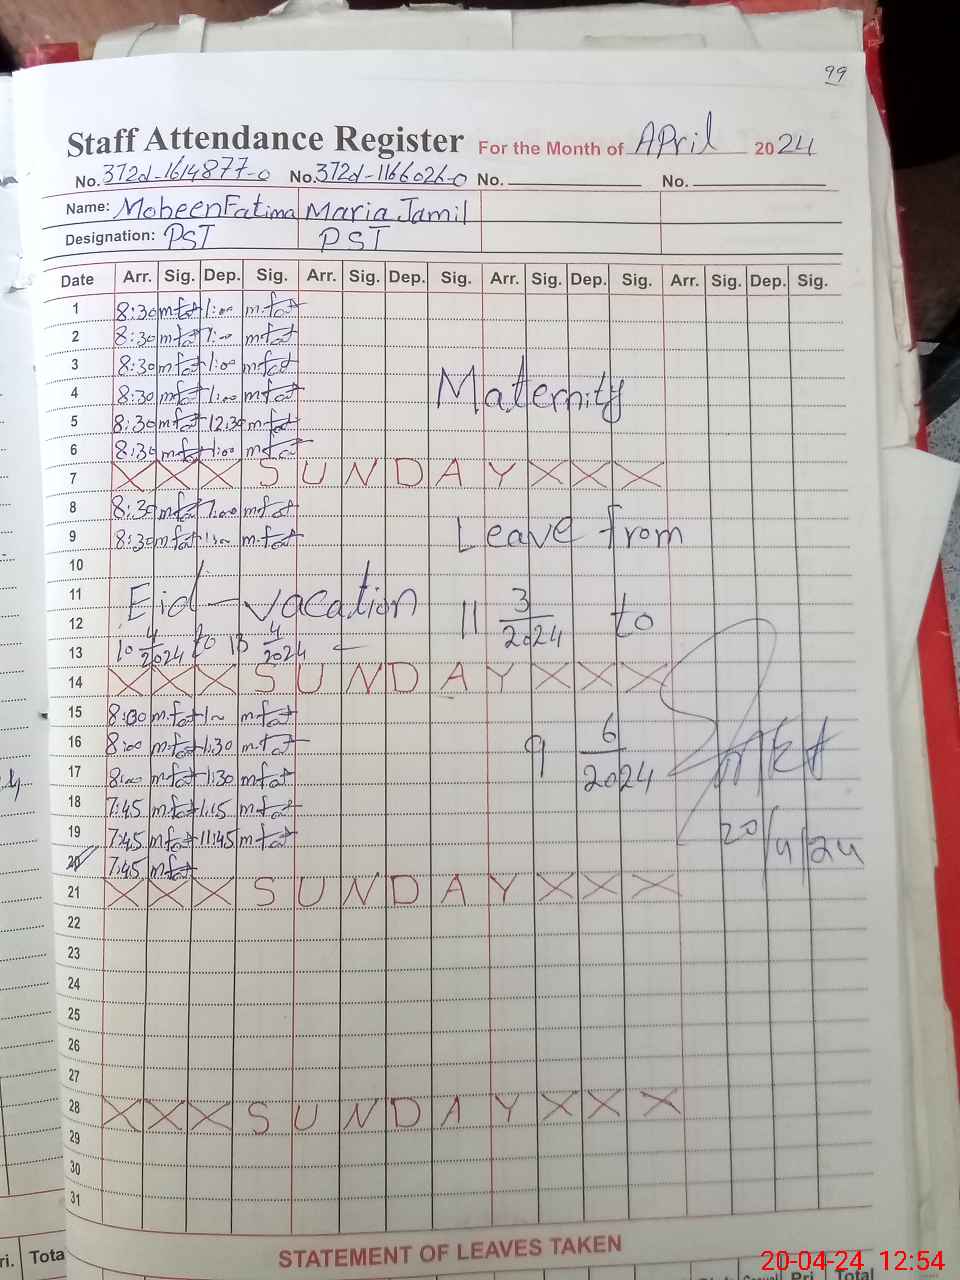 99
Staff Attendance Register For the Month of April 2024
No. 372d-1614877-0 No. 372d-1166026-0 No. No.
Name: Mobeen Fatima Maria Jamil
Designation: PST PST
Date Arr. Sig. Dep. Sig. Arr. Sig. Dep. Sig. Arr. Sig. Dep. Sig. Arr. Sig. Dep. Sig.
1 8:30 m.fat 1:00 m.fat
2 8:30 m.fat 1:00 m.fat
3 8:30 m.fat 1:00 m.fat
4 8:30 m.fat 1:00 m.fat Maternity
5 8:30 m.fat 12:30 m.fat
6 8:30 m.fat 1:00 m.fat
7 X X X S U N D A Y X X X
8 8:30 m.fat 1:00 m.fat
9 8:30 m.fat 1:00 m.fat Leave from
10
11 Eid-vacation
12 11 3/2024 to
13 10 4/2024 to 13 4/2024
14 X X X S U N D A Y X X X
15 8:00 m.fat m.fat
16 8:00 m.fat 1:30 m.fat 9 6/2024
17 8:00 m.fat 1:30 m.fat
18 7:45 m.fat 1:15 m.fat
19 7:45 m.fat 11:45 m.fat 20/4/24
20 7:45 m.fat
21 X X X S U N D A Y X X X
22
23
24
25
26
27
28 X X X S U N D A Y X X X
29
30
31
STATEMENT OF LEAVES TAKEN
ri. Tota
Pri. Total
20-04-24 12:54